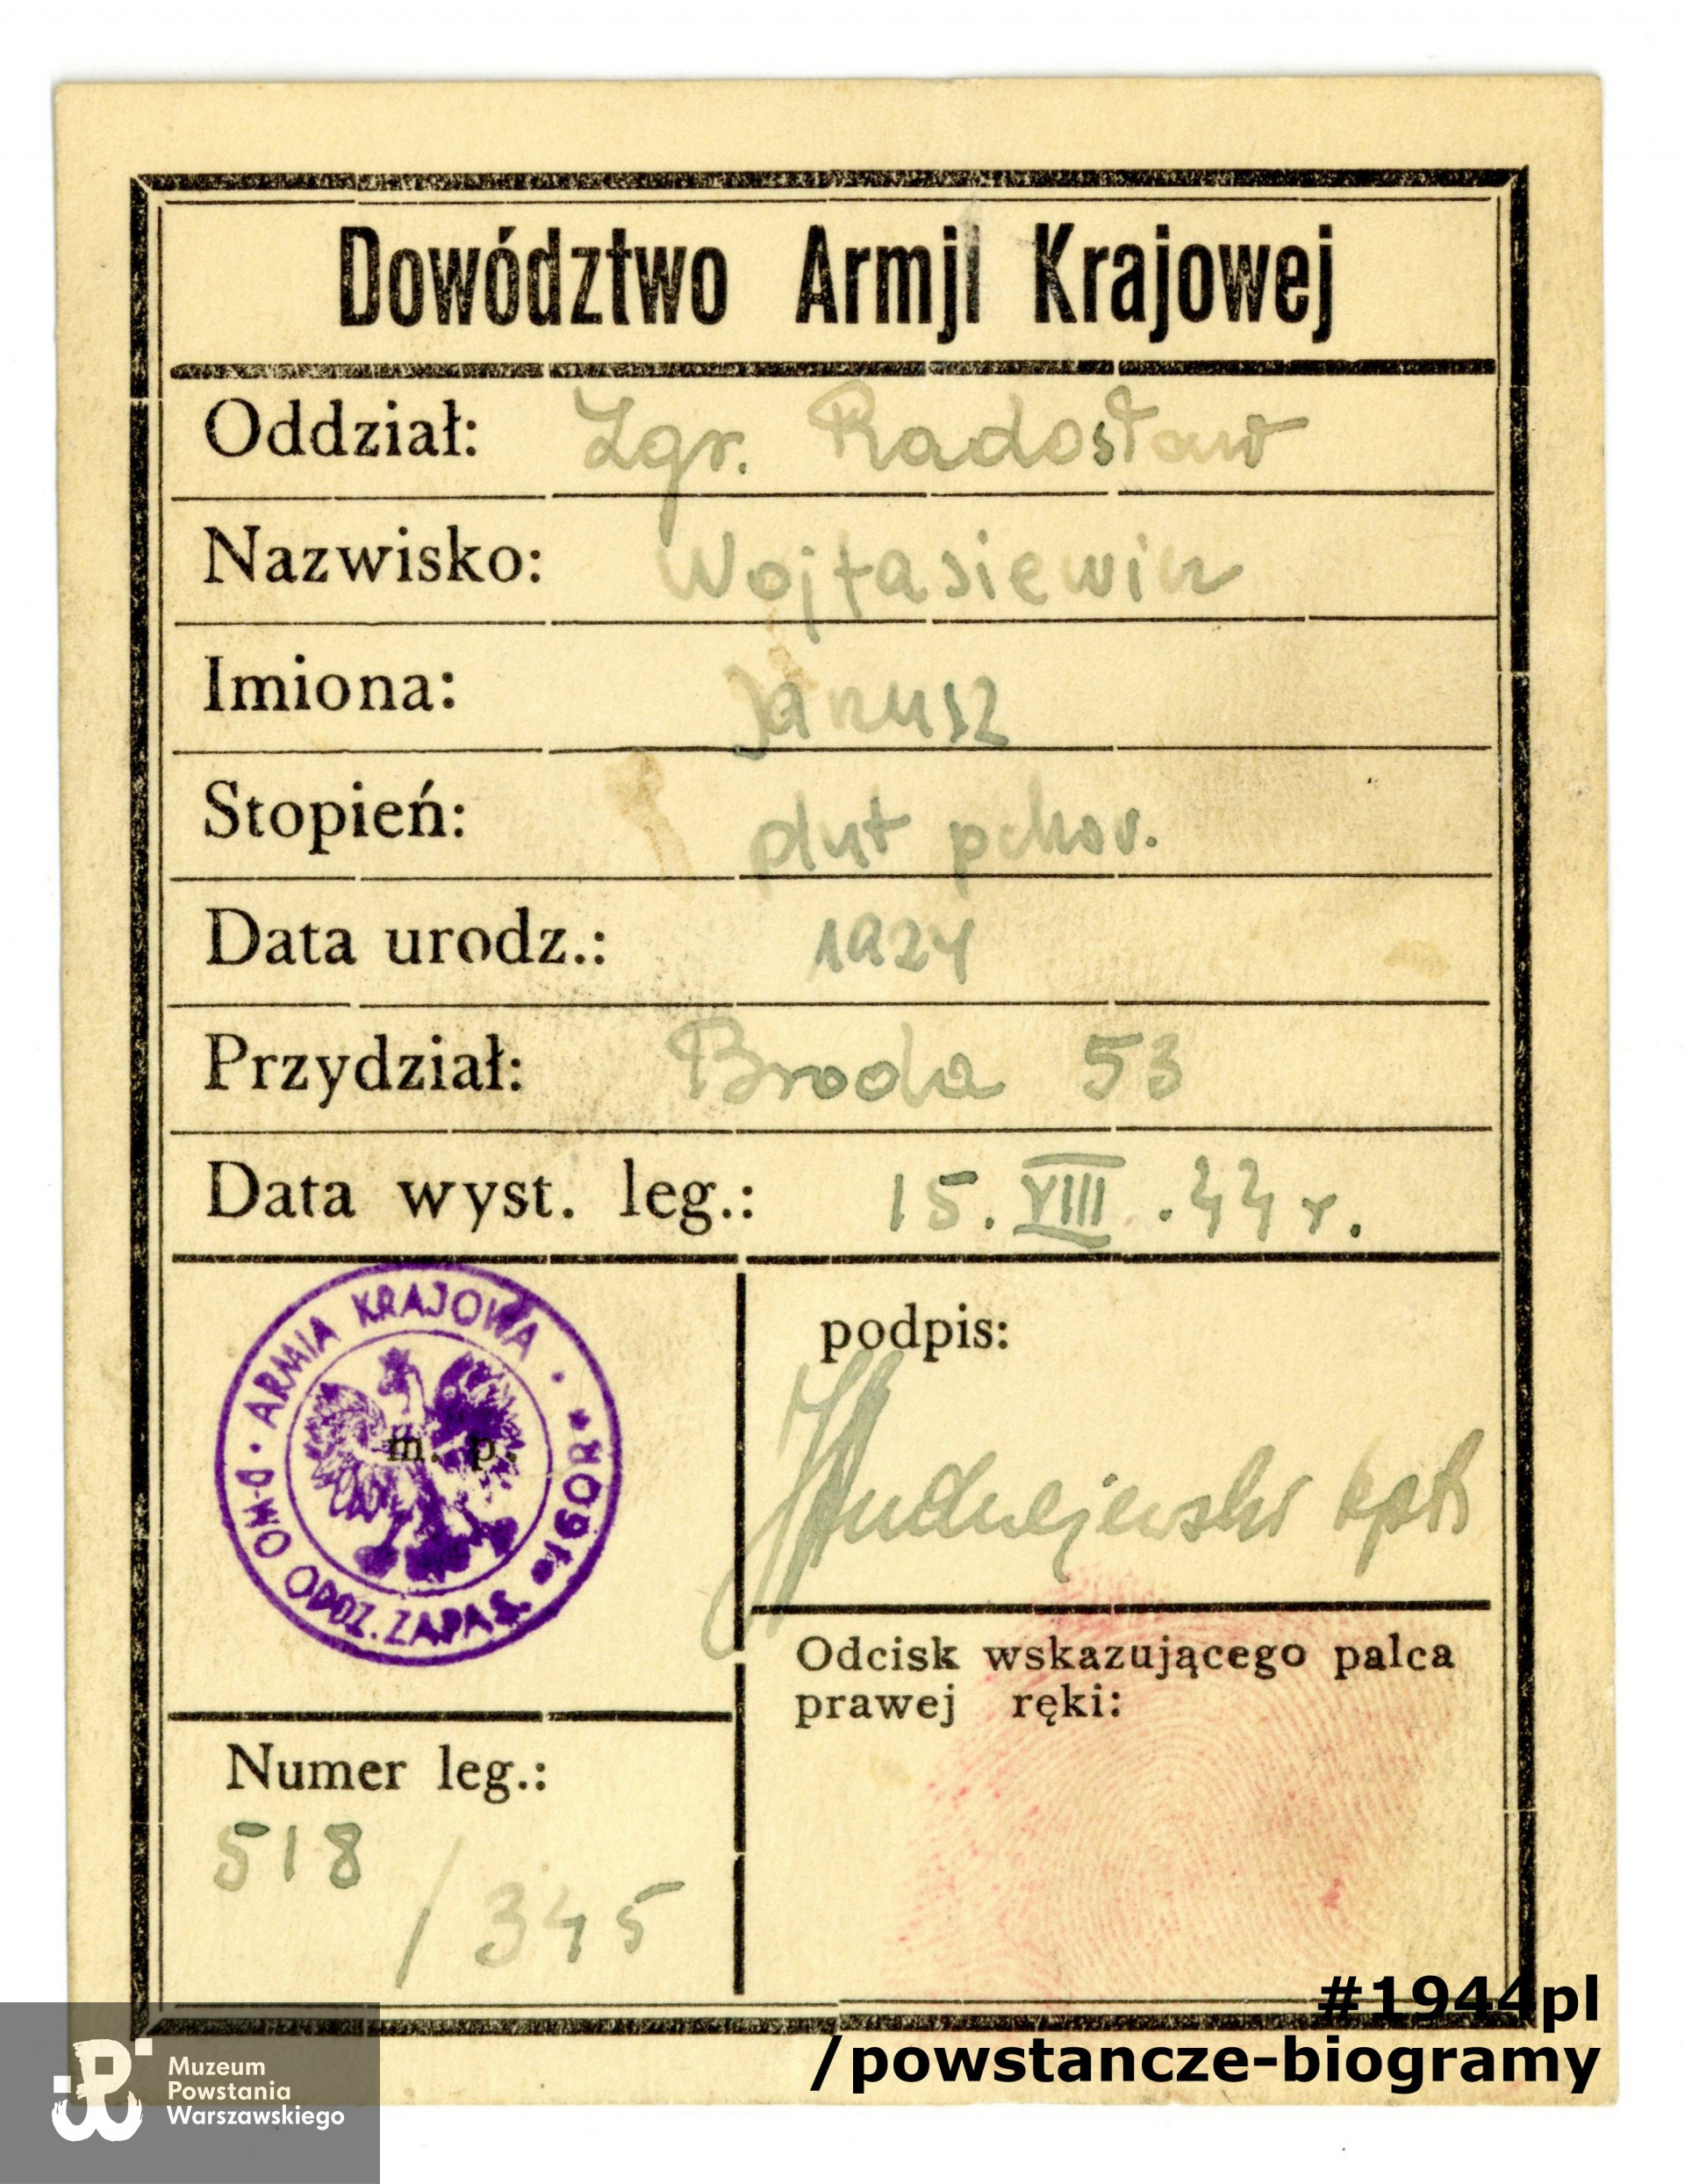 Dowództwo Armji Krajowej
Oddział: Zgr. Radosław
Nazwisko: Wojtasiewicz
Imiona: Janusz
Stopień: plut pchor.
Data urodz.: 1924
Przydział: Broda 53
Data wyst. leg.: 15. VIII. 44 r.
· ARMIA KRAJOWA ·
D-WO ODDZ. ZAPAS. "IGOR"
m. p.
podpis:
kpt
Odcisk wskazującego palca
prawej ręki:
Numer leg.:
518
/ 345
#1944pl
/powstancze-biogramy
Muzeum
Powstania
Warszawskiego